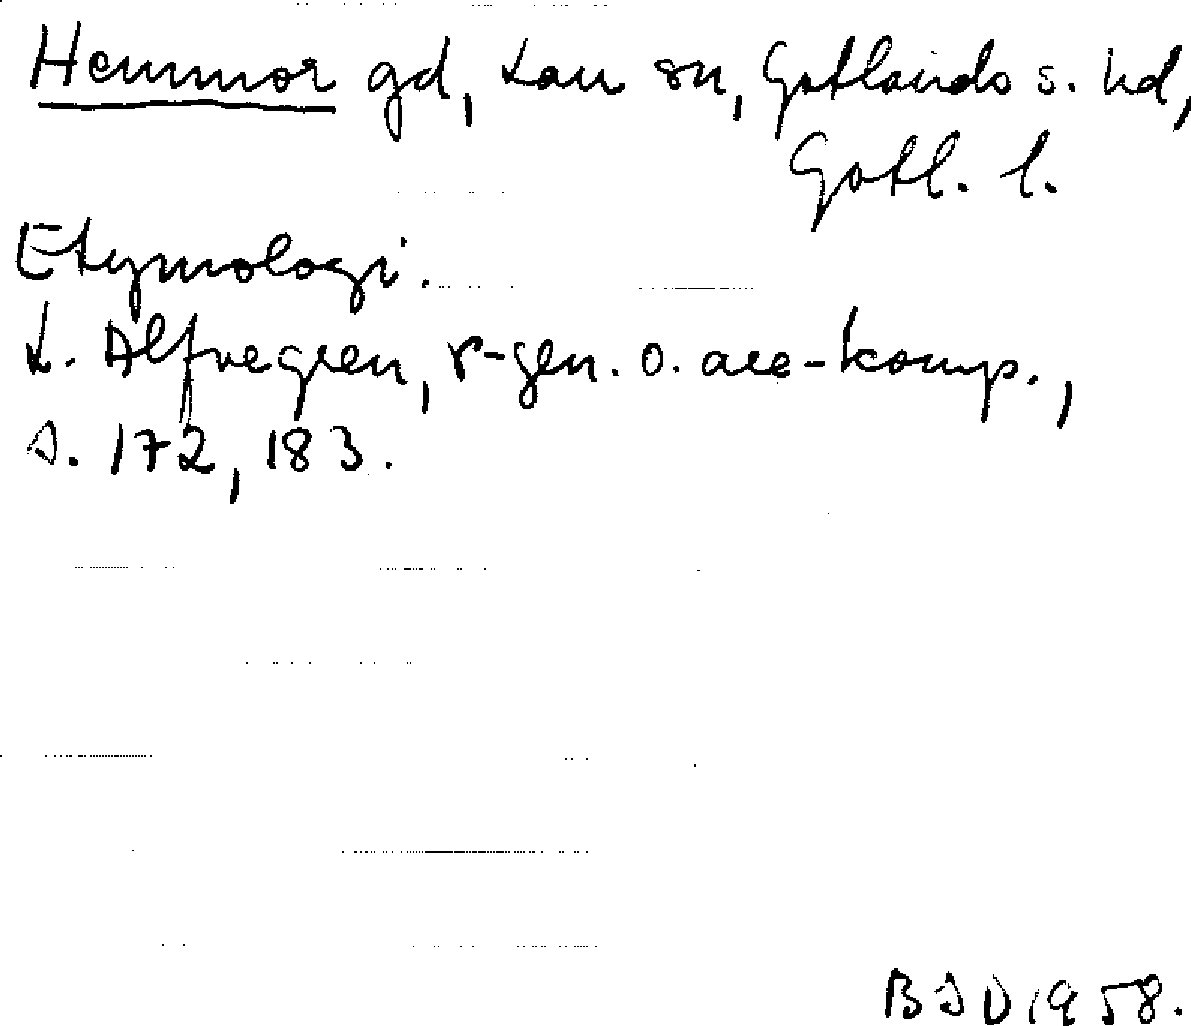 Hemmor gd, Lau sn, Gotlands s. hd,
Gotl. l.
Etymologi.
L. Alfvegren, r-gen. o. ace-komp.,
s. 172, 183.
BID 1958.